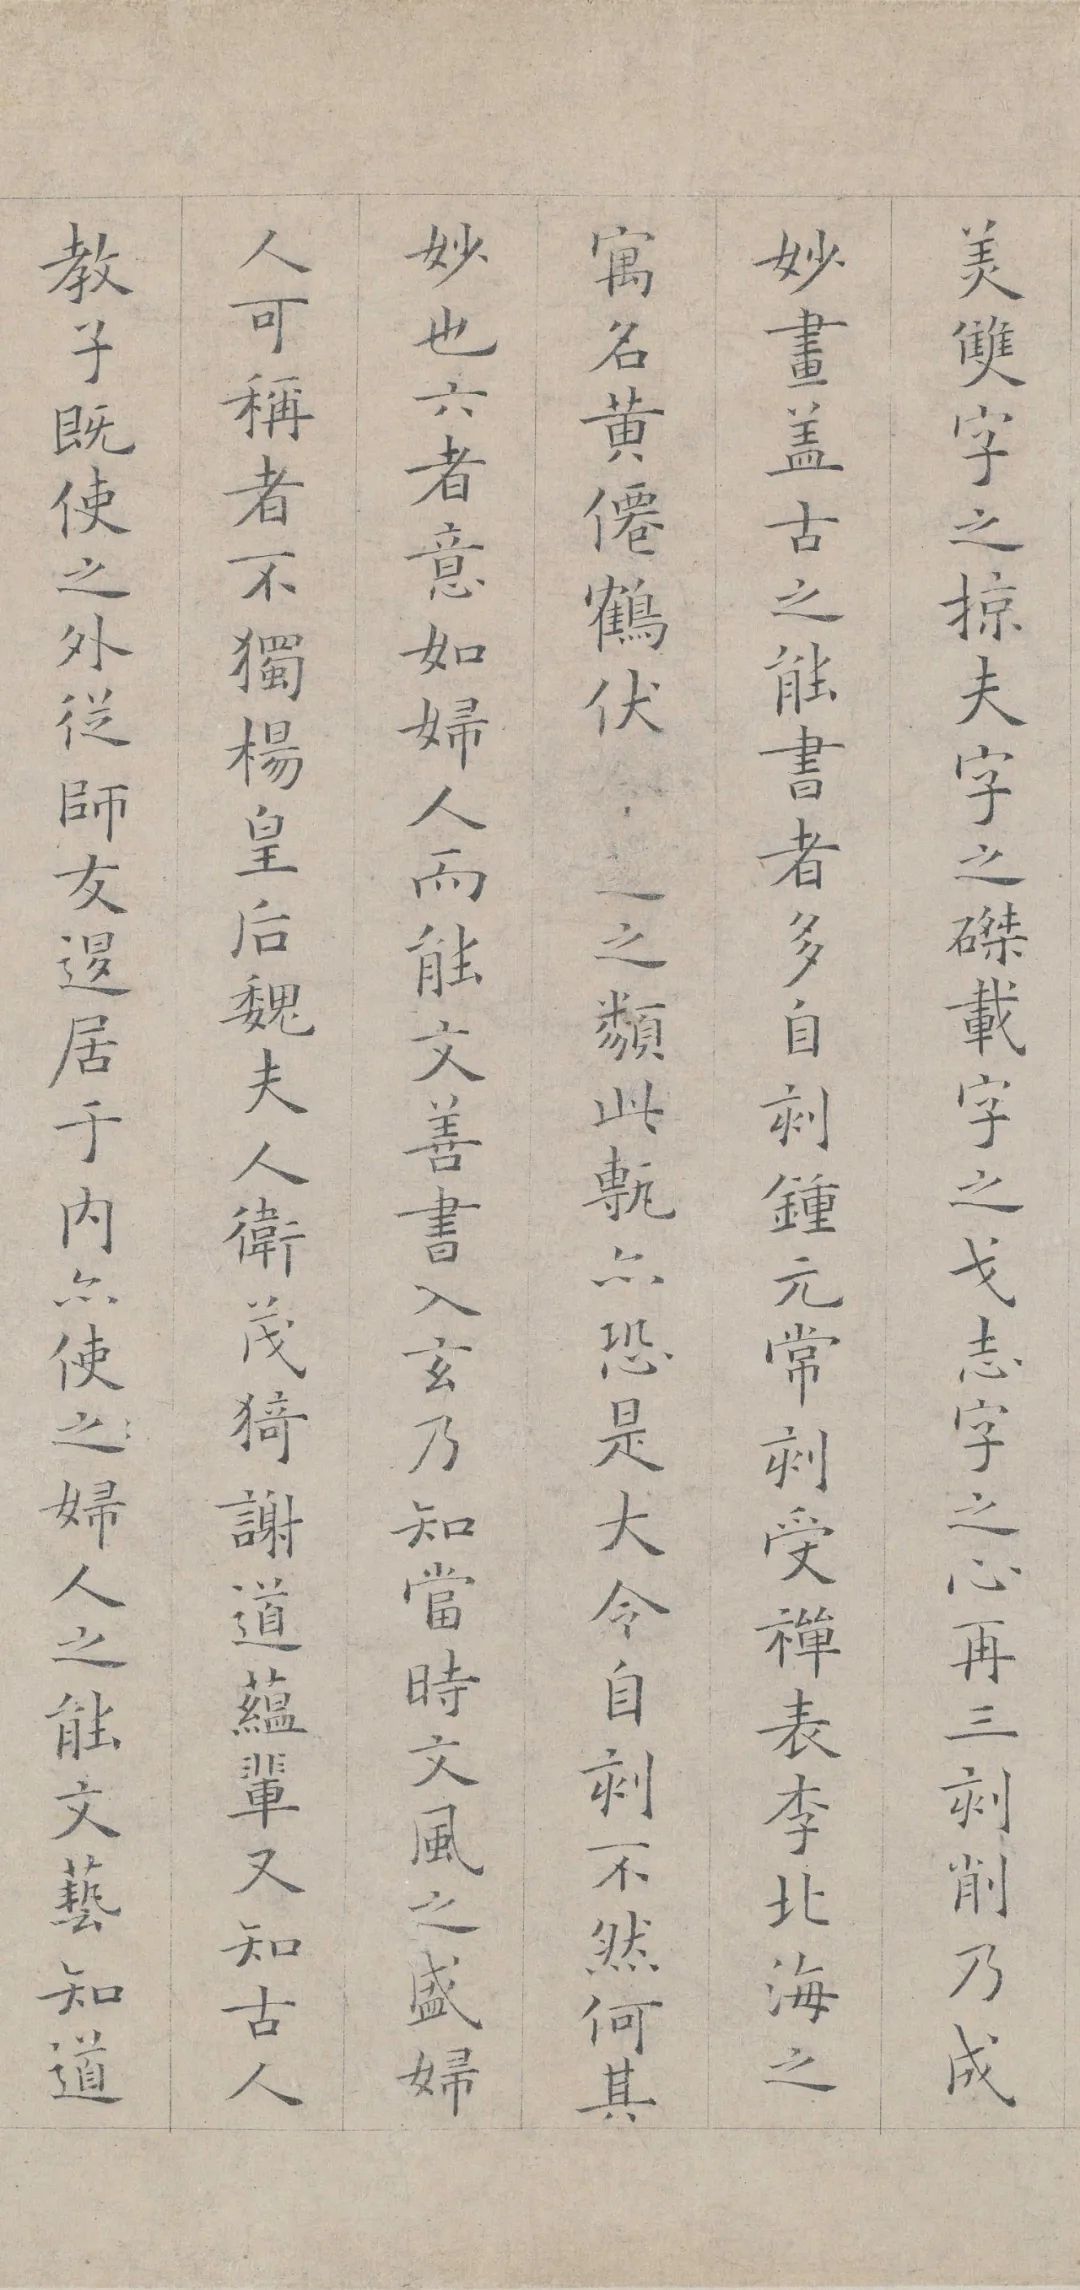 美雙字之掠夫字之磔載字之戈志字之心再三刻削乃成
妙畫盖古之能書者多自刻鍾元常刻受禪表李北海之
寓名黄僊鶴伏之之類此甎亦恐是大令自刻不然何其
妙也六者意如婦人而能文善書入玄乃知當時文風之盛婦
人可稱者不獨楊皇后魏夫人衛茂猗謝道蘊輩又知古人
教子既使之外從師友退居于内亦使之婦人之能文藝知道